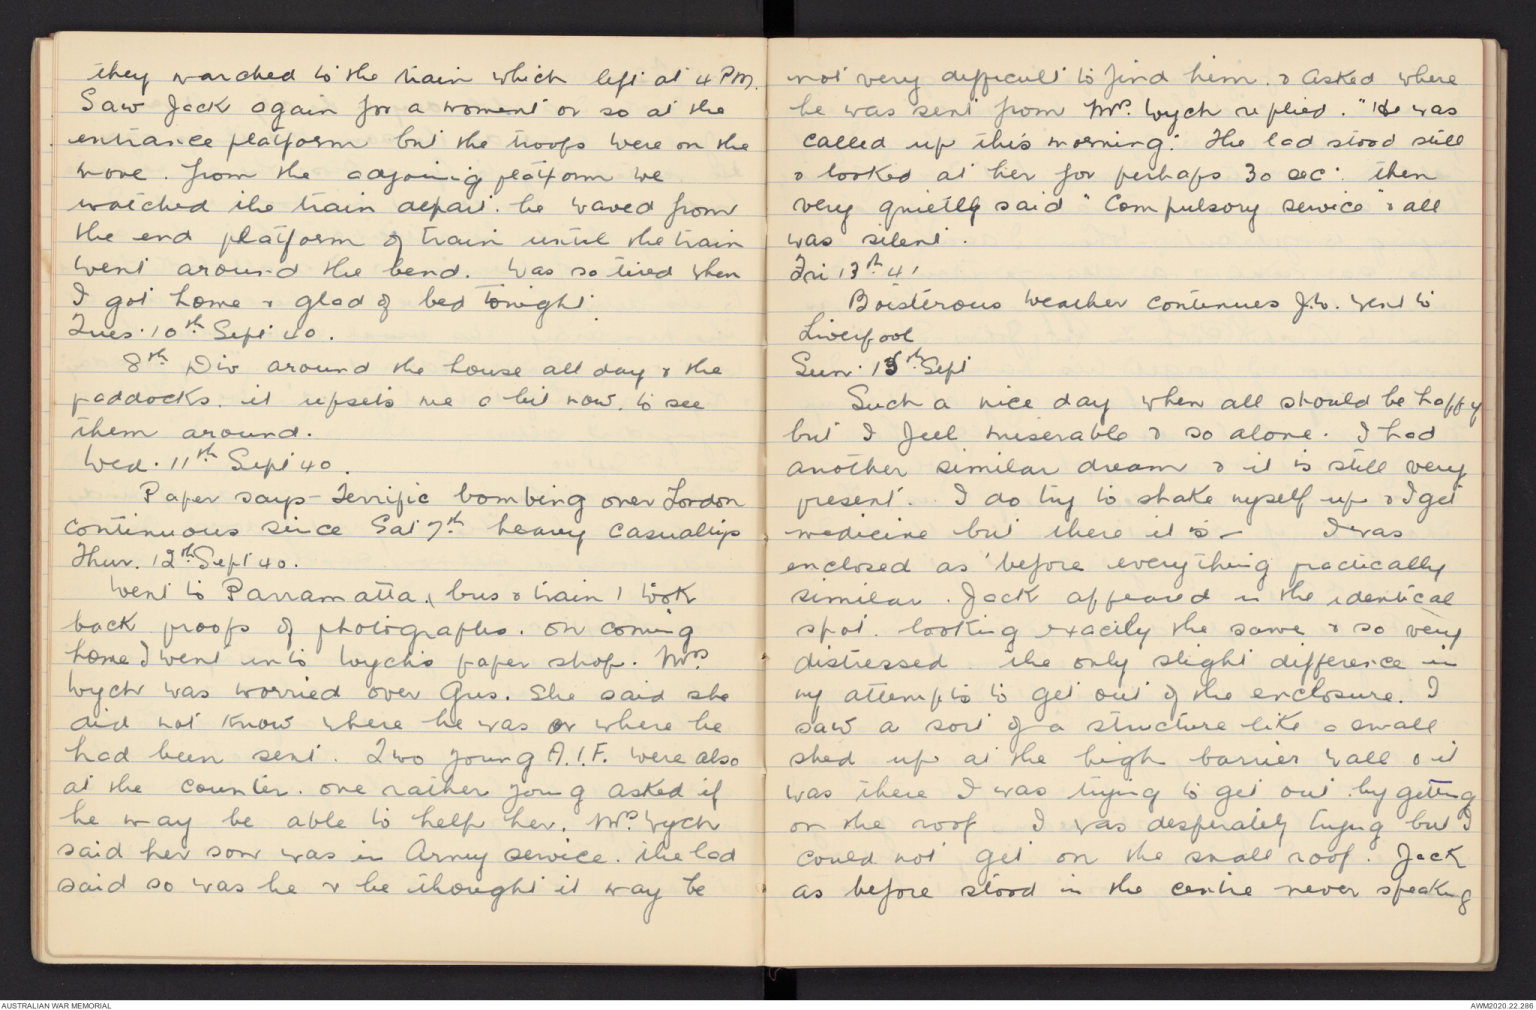 they marched to the train which left at 4 PM.
Saw Jack again for a moment or so at the
entrance platform but the troops were on the
move. from the adjoining platform we
watched the train depart. he waved from
the end platform of train until the train
went around the bend. Was so tired when
I got home & glad of bed tonight.
Tues. 10th Sept 40.
8th Div around the house all day & the
paddocks. it upsets me a bit now. to see
them around.
Wed. 11th Sept 40.
Paper says - Terrific bombing over London
continuous since Sat 7th heavy casualtys
Thur. 12th Sept 40.
Went to Parramatta, bus & train I took
back proofs of photographs. on coming
home I went into Wychs paper shop. Mrs
Wych was worried over Gus. She said she
did not know where he was or where he
had been sent. Two young A.I.F. were also
at the counter. one rather young asked if
he may be able to help her. Mrs Wych
said her son was in Army service. the lad
said so was he & he thought it may be
not very difficult to find him. & Asked where
he was sent from Mrs. Wych replied. "He was
called up this morning". The lad stood still
& looked at her for perhaps 30 sec. then
very quietly said "Compulsory service" & all
was silent.
Fri 13th 41
Boisterous weather continues J.W. went to
Liverpool
Sun. 15th Sept
Such a nice day when all should be happy
but I feel miserable & so alone. I had
another similar dream & it is still very
present. I do try to shake myself up & I get
medicine but there it is - I was
enclosed as before everything practically
similar. Jack appeared in the identical
spot. looking exactly the same & so very
distressed. the only slight difference in
my attempts to get out of the enclosure. I
saw a sort of a structure like a small
shed up at the high barrier wall & it
was there I was trying to get out by getting
on the roof I was desperately trying but I
could not get on the small roof. Jack
as before stood in the centre never speaking
AUSTRALIAN WAR MEMORIAL
AWM2020.22.286